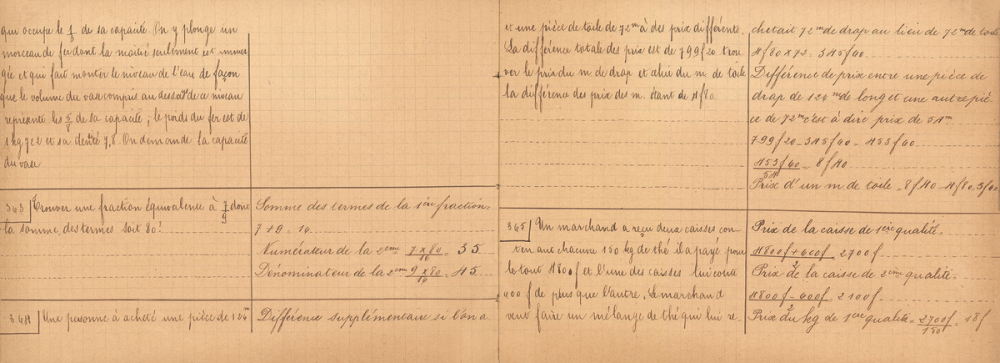 qui occupe le de sa capacité. On y plonge un
morceau de fer dont la moitié seulement est immer
gée et qui fait monter le niveau de l'eau de façon
que le volume du vase compris au dessus de ce niveau
représente les de sa capacité ; le poids du fer est de
et sa densité 7,8. On demande la capacité
du vase
343 Trouver une fraction équivalence à 7/9 dont
la somme des termes soit 80?
Somme des termes de la 1ère fraction
7+9 = 16
Numérateur de la 2ème 7×80/16 = 35
Dénominateur de la 2ème 9×80/16 = 45
344 Une personne à acheté une pièce de 124m
Différence supplémentaire si l'on a
et une pièce de toile de 72m à des prix différents.
La différence totale des prix est de 799f20 trou
ver le prix du m de drap et celui du m de toile
la différence des prix des m. étant de 4f80
chetait 72m de drap au lieu de 72m de toile
4f80×72 = 345f60
Différence de prix entre une pièce de
drap de 124m de long et une autre piè
ce de 72m c'est à dire prix de 54m
799f20 - 345f60 = 453f60
453f60/54 = 8f40
Prix d'un m de toile = 8f40 - 4f80 = 3f60
345 Un marchand a reçu deux caisses con
tenant chacune 150 kg de thé il a payé pour
le tout 4800f et l'une des caisses lui coute
600f de plus que l'autre. Le marchand
veut faire un mélange de thé qui lui re
Prix de la caisse de 1ère qualité.
4800f+600f/2 = 2700f
Prix de la caisse de 2ème qualité.
4800f-600f/2 = 2100f
Prix du kg de 1ère qualité = 2700f/150 = 18f